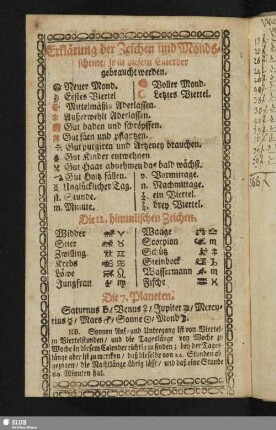 Erklärung der Zeichen und Monds-
scheine, so in diesem Calender
gebraucht werden.
Neuer Mond. Voller Mond.
Erstes Viertel Letztes Viertel.
Mittelmäßig Aderlassen.
Außerwehlt Aderlassen.
Gut baden und schröpffen.
Gut säen und pflantzen.
Gut purgiren und Artzeney brauchen.
Gut Kinder entwehnen
Gut Haar abnehmen das bald wächst.
Gut Holtz fällen. v. Vormittage.
Unglücklicher Tag. n. Nachmittage.
st. Stunde. ¼. ein Viertel.
m. Minute. ¾. drey Viertel.
Die 12. himmlischen Zeichen.
Widder ♈ Waage ♎
Stier ♉ Scorpion ♏
Zwilling ♊ Schütz ♐
Krebs ♋ Steinbock ♑
Löwe ♌ Wassermann ♒
Jungfrau ♍ Fische ♓
Die 7. Planeten.
Saturnus ♄/ Venus ♀/ Jupiter ♃/ Mercu-
rius ☿/ Mars ♂/ Sonne ☉/ Mond ☽.
NB. Sonnen Auf- und Untergang ist von Viertel-
in Viertelstunden, und die Tageslänge von Woche zu
Woche in diesem Calender richtig zu finden; bey der Tages
länge aber ist zu mercken, daß dieselbe von 24. Stunden ab
gezogen, die Nachtlänge übrig lässt, und daß eine Stunde
60. Minuten hat.
SLUB